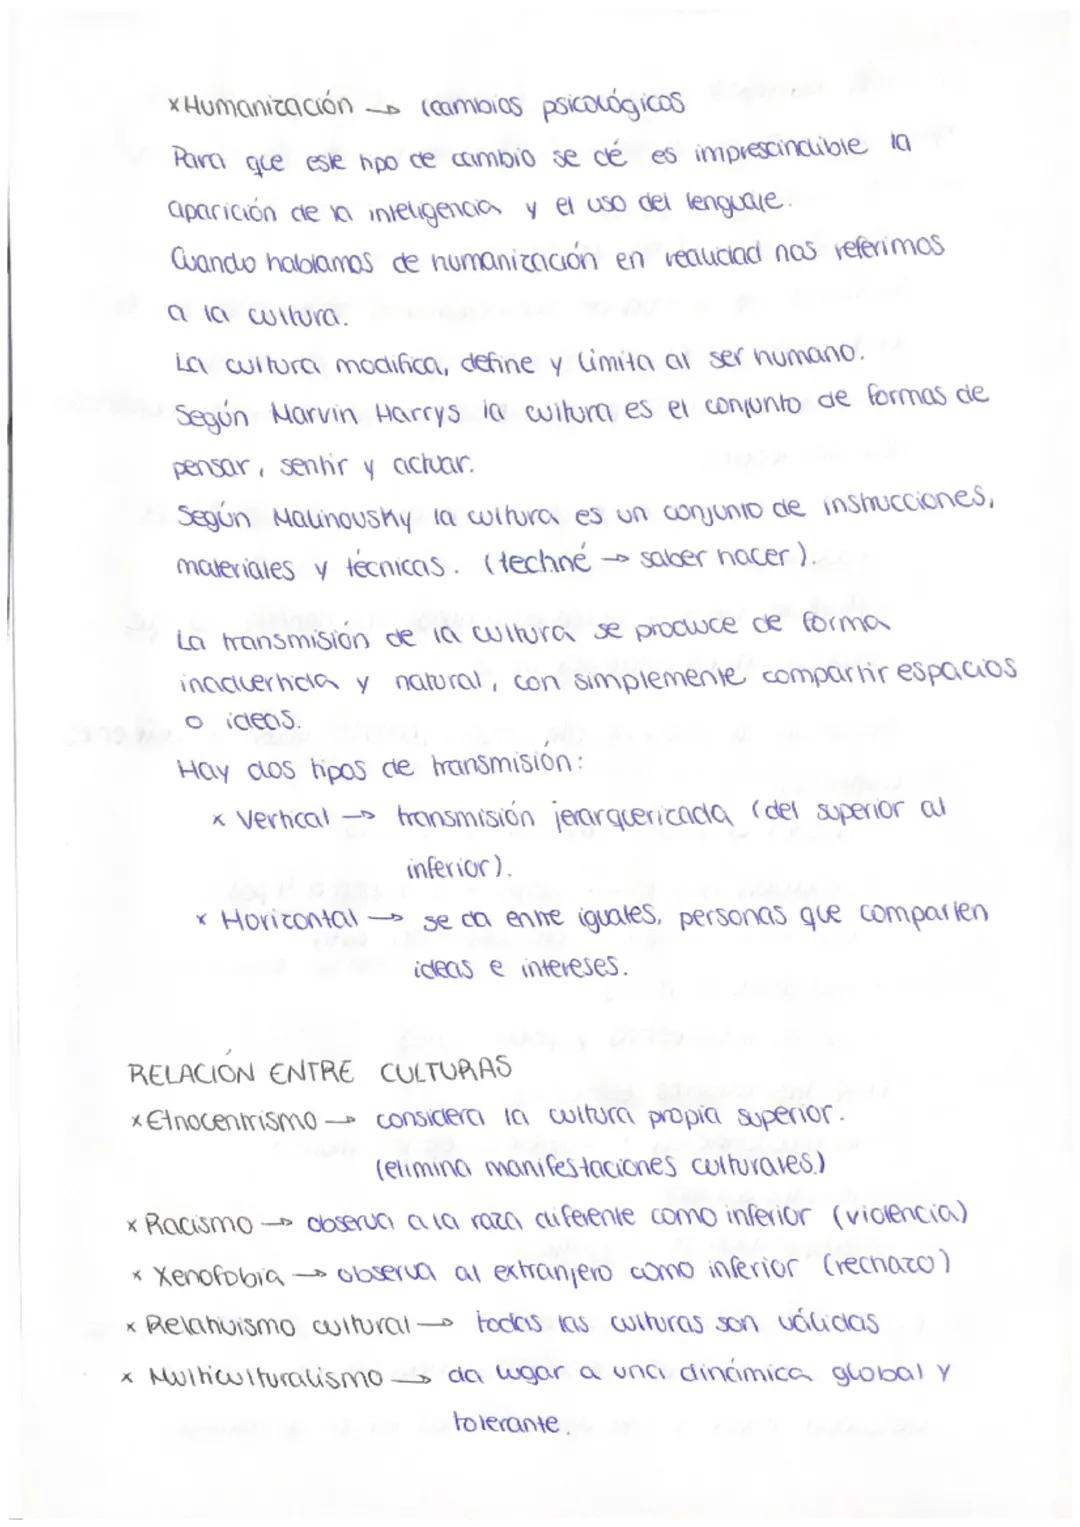 x Humanización → (cambios psicológicos
Para que este tipo de cambio se dé es imprescindible la
aparición de la inteligencia y el uso del lenguaje.
Cuando hablamos de humanización en realidad nos referimos
a la cultura.
La cultura modifica, define y limita al ser humano.
Según Marvin Harrys la cultura es el conjunto de formas de
pensar, sentir y actuar.
Según Malinousky la cultura es un conjunto de instrucciones,
materiales y técnicas. (techné → saber hacer).
La transmisión de la cultura se produce de forma
inadvertida y natural, con simplemente compartir espacios
o ideas.
Hay dos tipos de transmisión:
x Vertical → transmisión jerarquerizada (del superior al
inferior).
x Horizontal → se da entre iguales, personas que comparten
ideas e intereses.
RELACIÓN ENTRE CULTURAS
x Etnocentrismo → considera la cultura propia superior.
(elimina manifestaciones culturales.)
x Racismo → observa a la raza diferente como inferior (violencia)
x Xenofobia → observa al extranjero como inferior (rechazo)
x Relativismo cultural → todas las culturas son válidas
x Multiculturalismo → da lugar a una dinámica global y
tolerante.